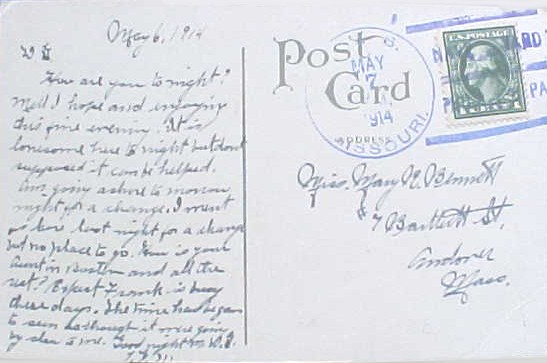 May 6, 1914
How are you to night?
Well I hope and enjoying
this fine evening. It is
lonesome here to night but dont
suppose it can be helped.
Am going ashore to morrow
night for a change. I went
ashore last night for a change
but no place to go. How is your
Aunt in Boston and all the
rest? Expect Frank is busy
these days. The time has began
to seem as though it were going
by slow to me. Good night
Post
Card
ADDRESS
U.S.
MAY
7
1914
MISSOURI.
U.S. POSTAGE
YARD
PA
Miss. Mary Bennett
7 Bartlett St.
Andover
Mass.